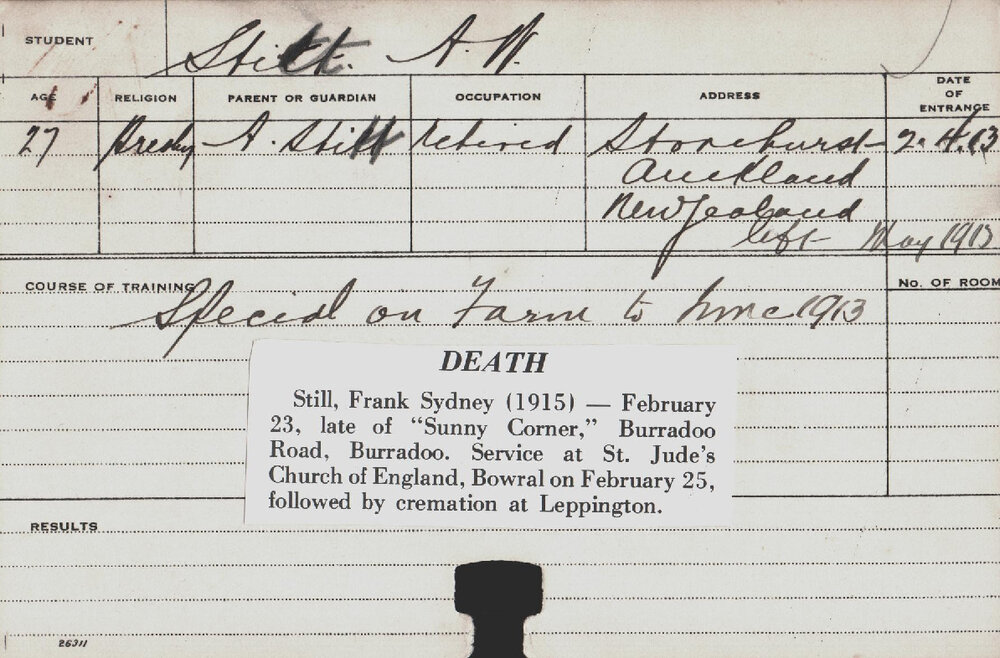 STUDENT Stitt. A. W.
AGE RELIGION PARENT OR GUARDIAN OCCUPATION ADDRESS DATE OF ENTRANCE
27 Presby A. Stitt Retired Stonehurst 2.4.13
Auckland
New Zealand
left May 1913
COURSE OF TRAINING No. OF ROOM
Special on Farm to 1913
DEATH
Still, Frank Sydney (1915) — February
23, late of “Sunny Corner,” Burradoo
Road, Burradoo. Service at St. Jude’s
Church of England, Bowral on February 25,
followed by cremation at Leppington.
RESULTS
26311